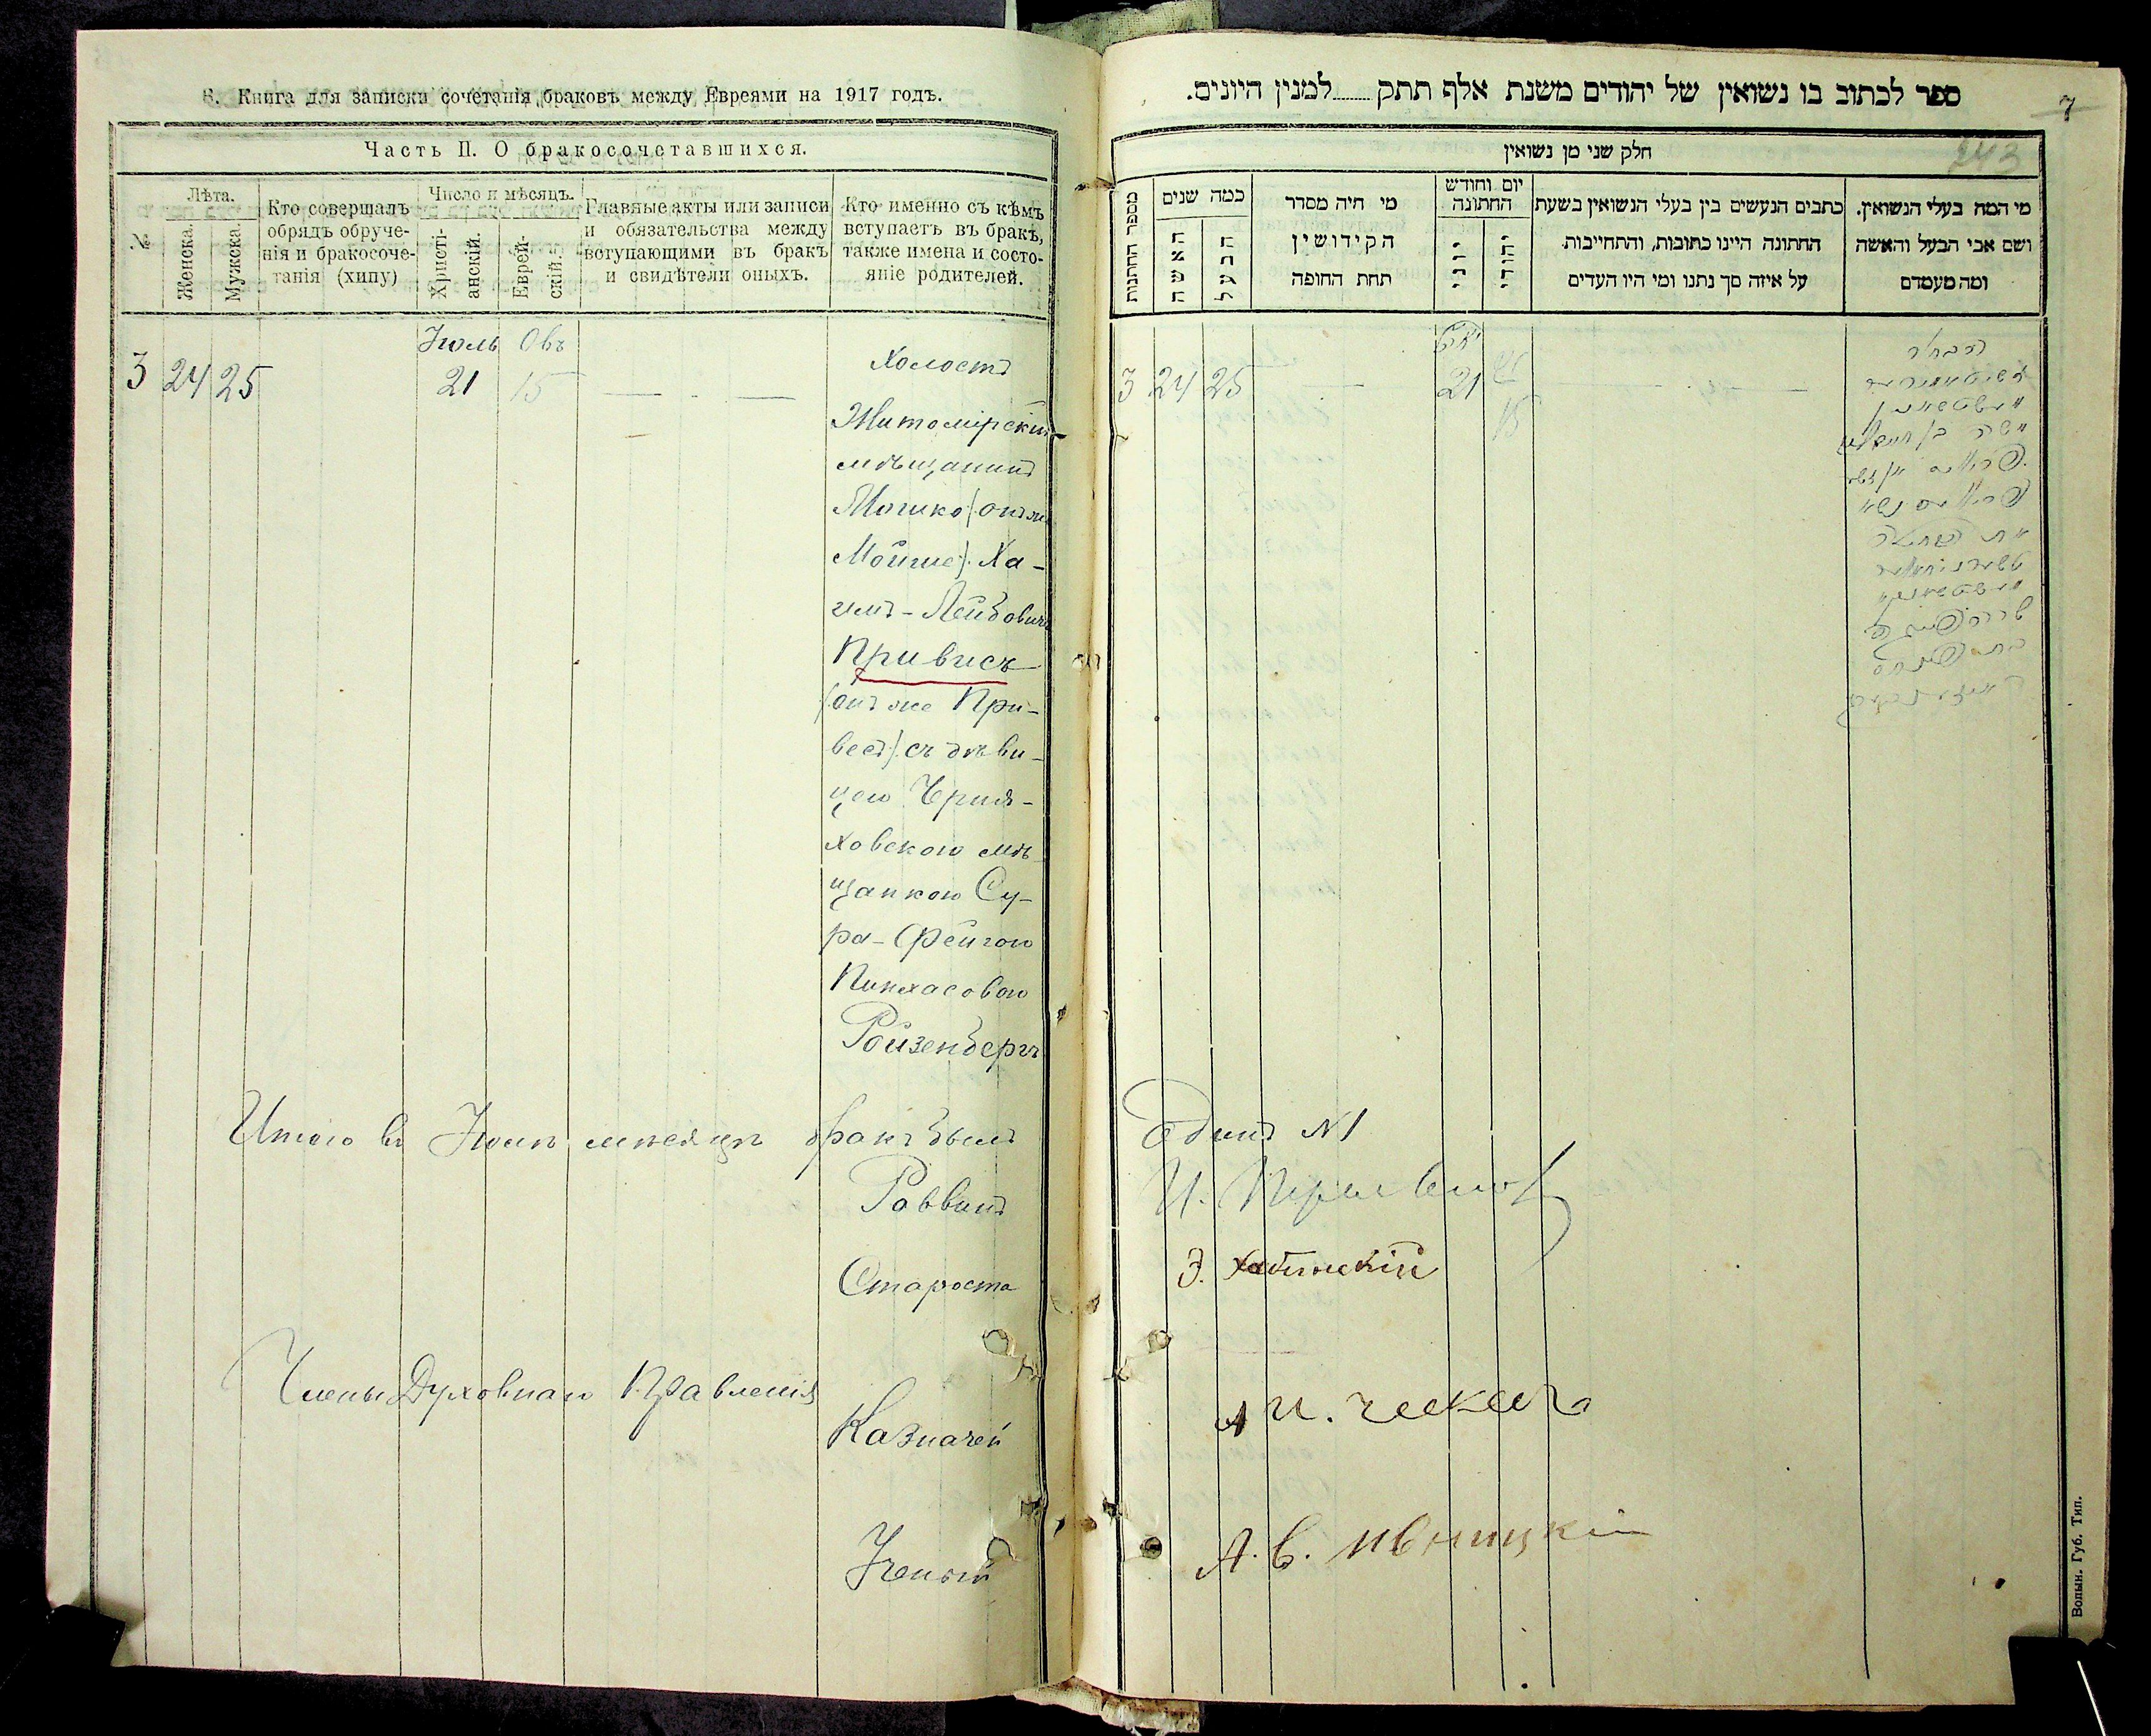 8. Книга для записки сочетанія браковъ между Евреями на 1917 годъ.
Часть II. О бракосочетавшихся.
№
Лѣта.
Женска.
Мужска.
Кто совершалъ
обрядъ обруче-
нія и бракосоче-
танія (хипу)
Число и мѣсяцъ.
Христі-
анскій.
Еврей-
скій.
Главные акты или записи
и обязательства между
вступающими въ бракъ
и свидѣтели оныхъ.
Кто именно съ кѣмъ
вступаетъ въ бракъ,
также имена и состо-
яніе родителей.
Іюль Овъ
3 24 25 21 15
Холостъ
Житомірскій
мѣщанинъ
Мошко (онъ же
Мойше) Ха-
имъ-Лейбовичъ
Привисъ
(онъ же При-
весъ) съ дѣви-
цею Черня-
ховскою мѣ-
щанкою Су-
ра-Фейгою
Пинхасовою
Ройзенбергъ
Итого въ Іюлѣ мѣсяцѣ бракъ былъ
Раввинъ
Староста
Члены Духовнаго Правленія
Казначей
Ученый
ספר לכתוב בו נשואין של יהודים משנת אלף תתק למנין היונים.
7
243
חלק שני מן נשואין
מספר החתונות
כמה שנים
האשה
הבעל
מי היה מסדר
הקידושין
תחת החופה
יום וחודש
החתונה
יוני
יהודי
כתבים הנעשים בין בעלי הנשואין בשעת
החתונה היינו כתובות, והתחייבות
על איזה סך נתנו ומי היו העדים
מי המה בעלי הנשואין.
ושם אבי הבעל והאשה
ומה מעמדם
3 24 25 21
15
הבחור
משה בן חיים
Одинъ №1
А. В. Ивницкій
Волын. Губ. Тип.